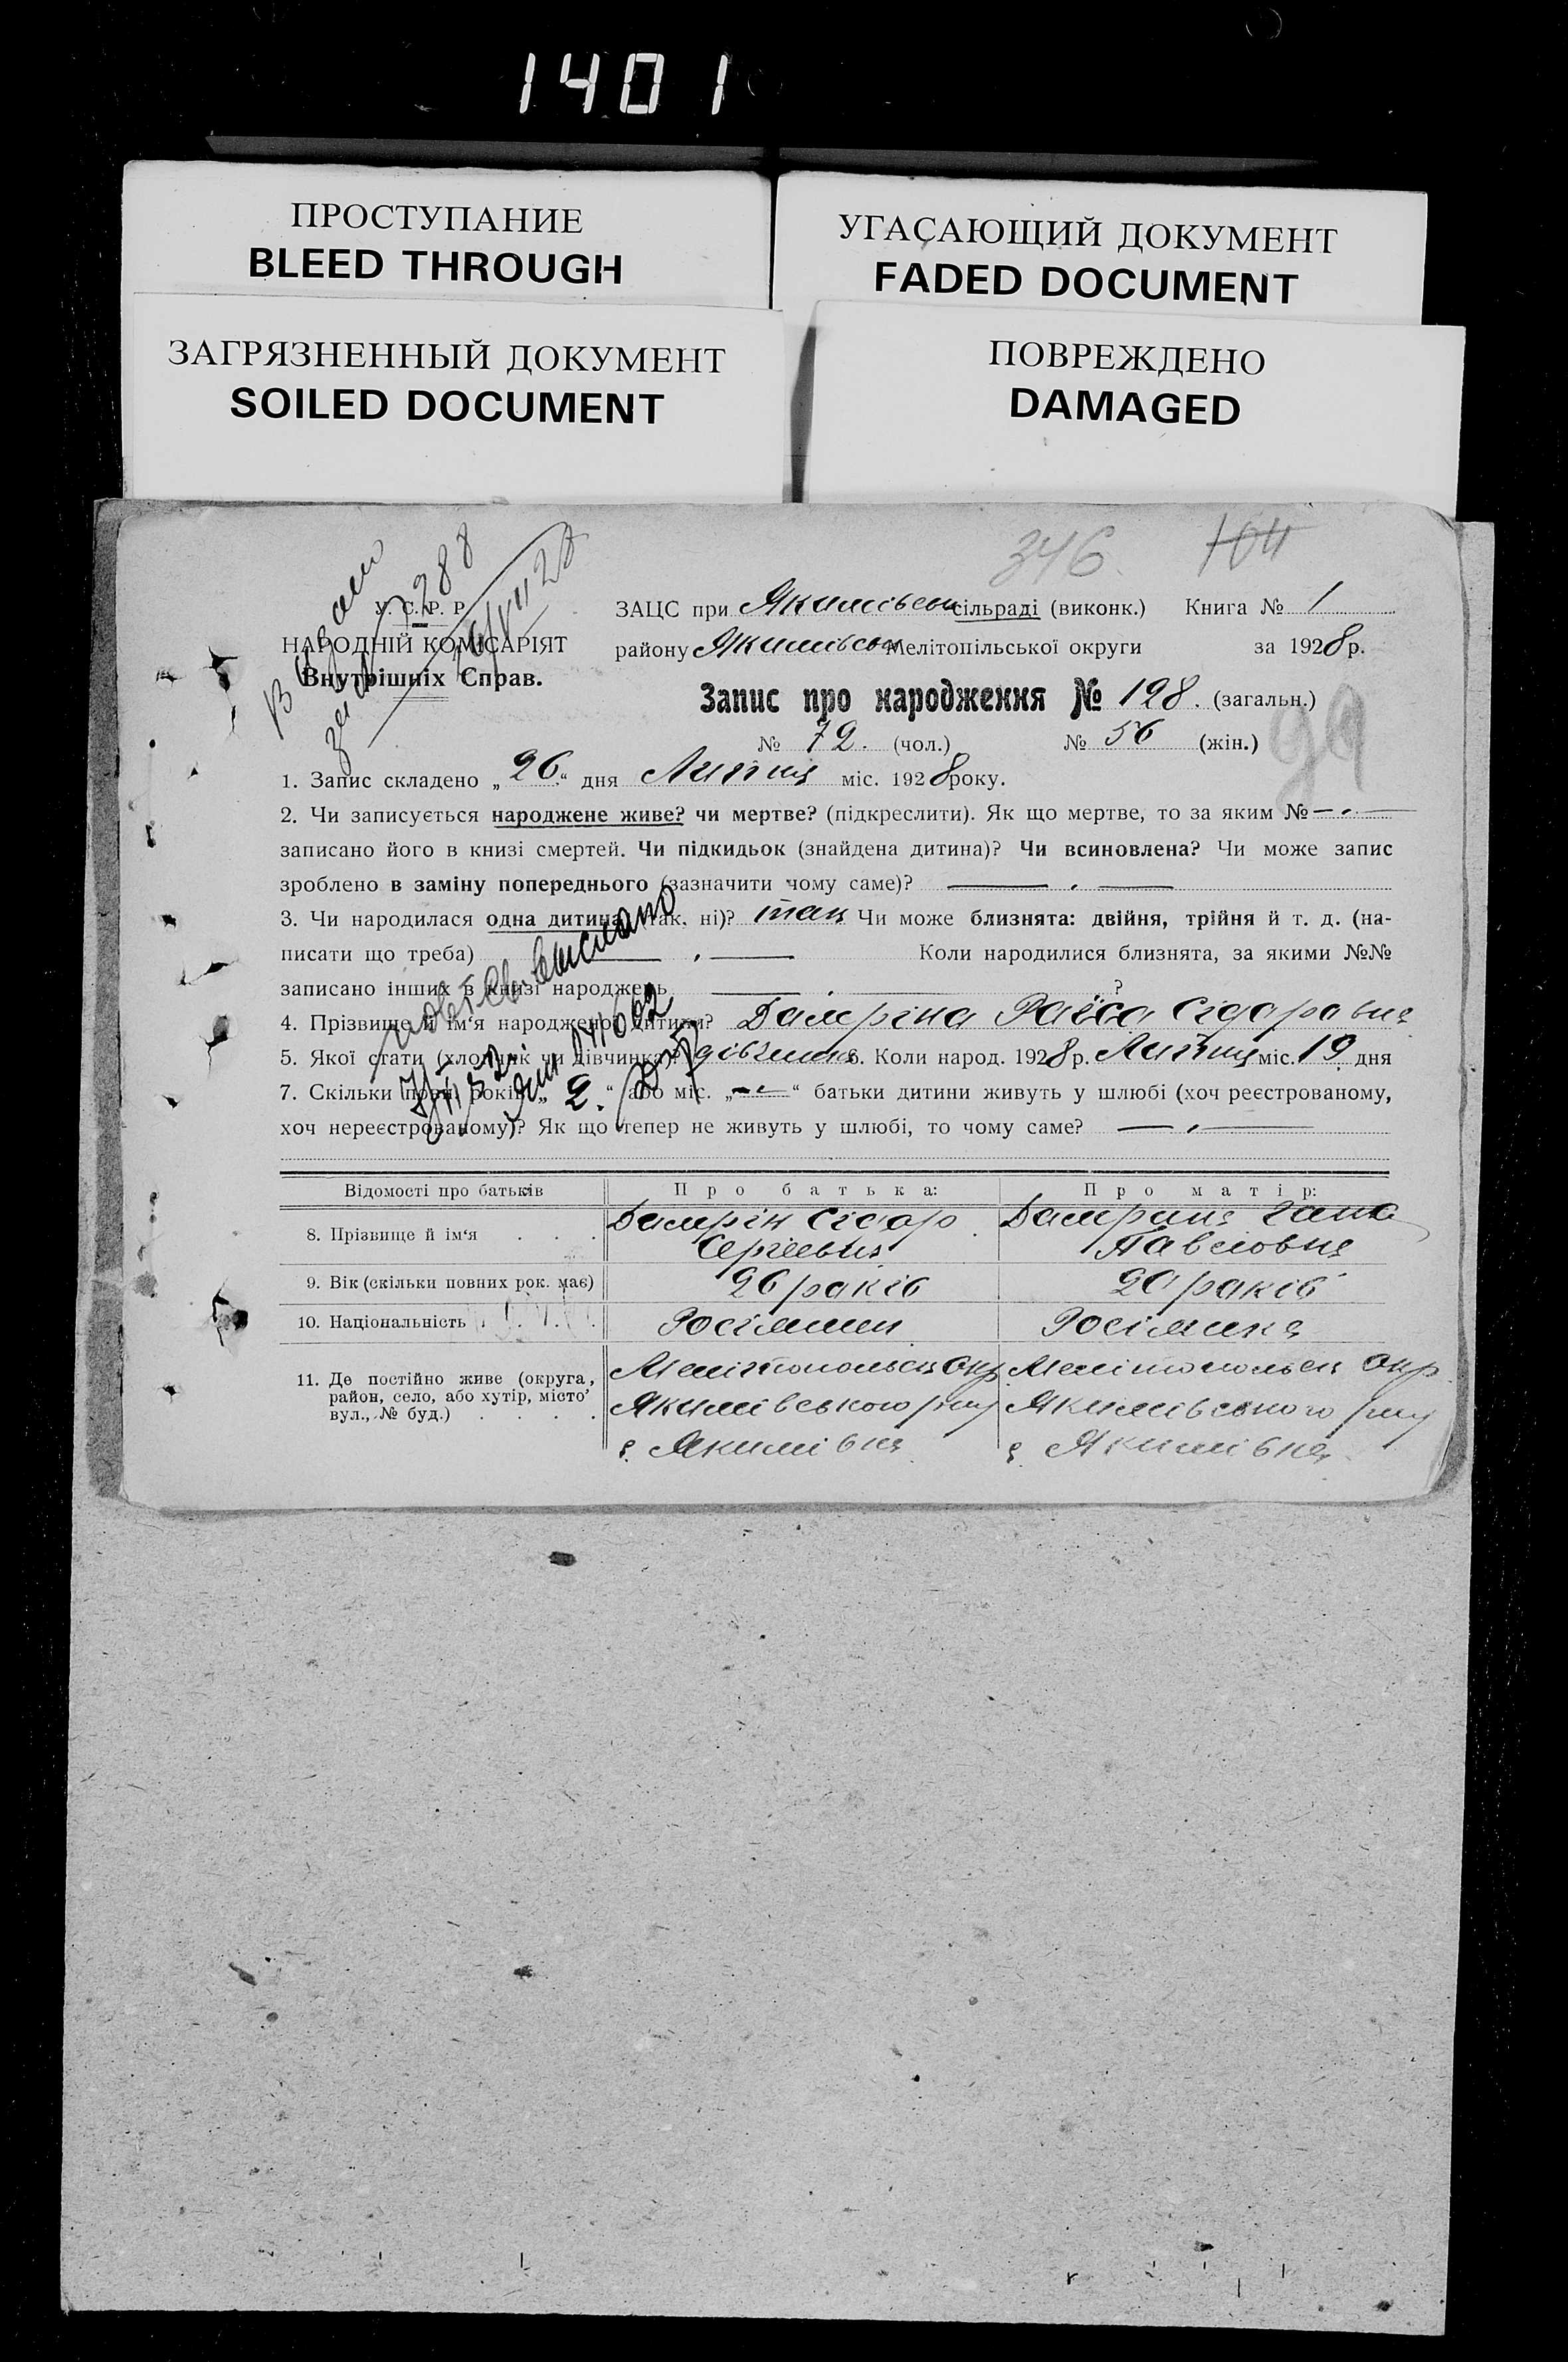 1401
ПРОСТУПАНИЕ
BLEED THROUGH
УГАСАЮЩИЙ ДОКУМЕНТ
FADED DOCUMENT
ЗАГРЯЗНЕННЫЙ ДОКУМЕНТ
SOILED DOCUMENT
ПОВРЕЖДЕНО
DAMAGED
346. 104
У. С. Р. Р.
НАРОДНІЙ КОМІСАРІЯТ
Внутрішніх Справ.
288
ЗАЦС при Якимівськ сільраді (виконк.) Книга № 1
району Якимівськ Мелітопільської округи за 1928 р.
Запис про народження № 128. (загальн.)
№ 72. (чол.) № 56 (жін.)
99
1. Запис складено „26“ дня Липня міс. 1928 року.
2. Чи записується народжене живе? чи мертве? (підкреслити). Як що мертве, то за яким № —
записано його в книзі смертей. Чи підкидьок (знайдена дитина)? Чи всиновлена? Чи може запис
зроблено в заміну попереднього (зазначити чому саме)? —
3. Чи народилася одна дитина (так, ні)? так Чи може близнята: двійня, трійня й т. д. (на-
писати що треба) — Коли народилися близнята, за якими №№
записано інших в книзі народжень — ?
4. Прізвище й ім‘я народженої дитини? Дамріна Раїса Сідаравна
5. Якої стати (хлопчик чи дівчинка)? дівчинка 6. Коли народ. 1928 р. Липня міс. 19 дня
7. Скільки повн. років „2.“ або міс. „—“ батьки дитини живуть у шлюбі (хоч реєстрованому,
хоч нереєстрованому)? Як що тепер не живуть у шлюбі, то чому саме? —
Відомості про батьків Про батька: Про матір:
8. Прізвище й ім‘я . . . Дамрін Сідар Дамрина Гана
Сергієвич Павловна
9. Вік (скільки повних рок. має) 26 раків 20 раків
10. Національність . . . . Росіянин Росіянка
11. Де постійно живе (округа, Мелітопольськ Окр Мелітопольськ Окр
район, село, або хутір, місто, Якимівського р-ну Якимівського р-ну
вул., № буд.) . . . .
с. Якимівка с. Якимівка